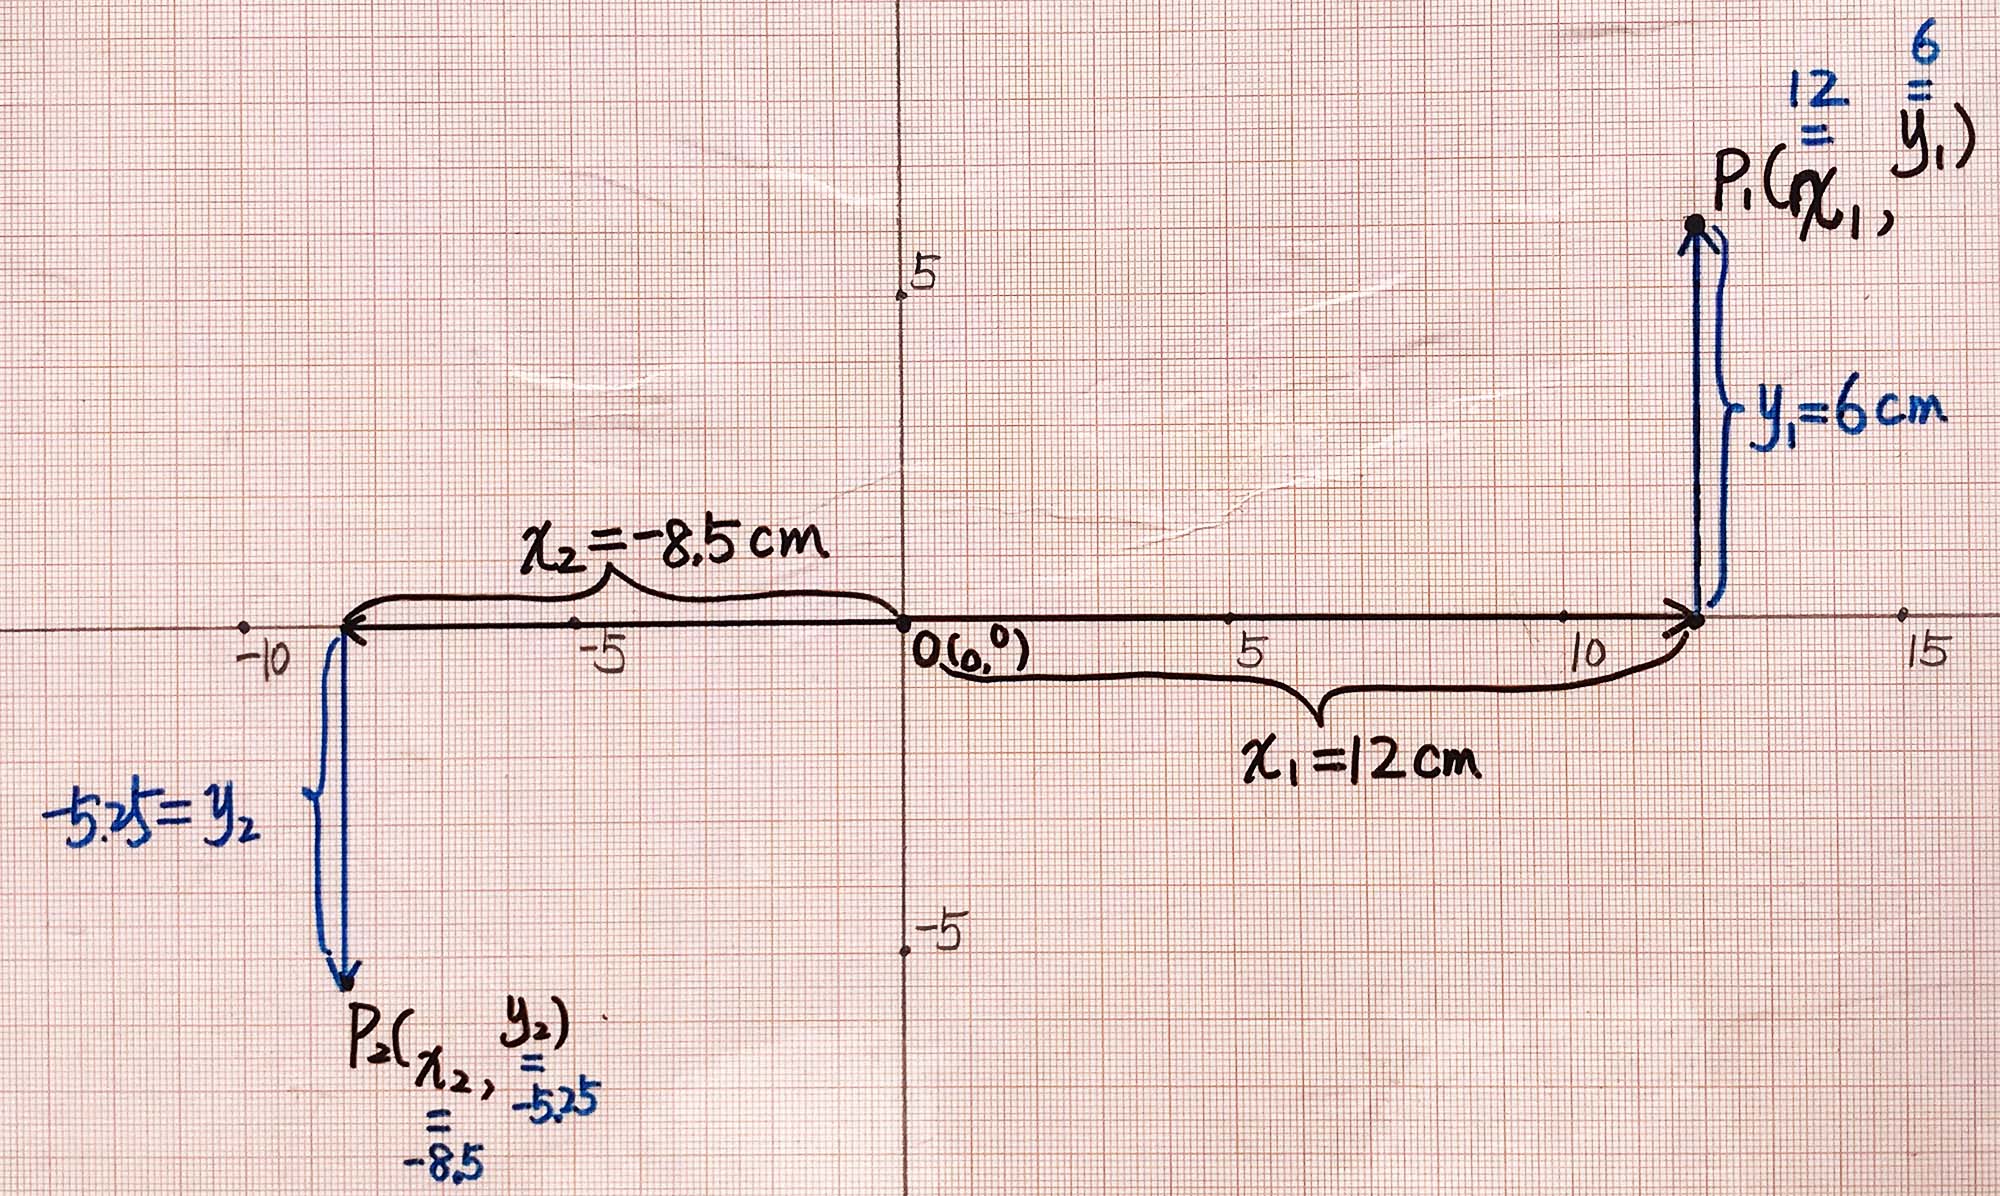 12 6
= =
P₁(x₁, y₁)
5
y₁=6cm
x₂=-8.5cm
-10 -5 O(0,0) 5 10 15
x₁=12cm
-5.25=y₂
-5
P₂(x₂, y₂)
= =
-8.5 -5.25